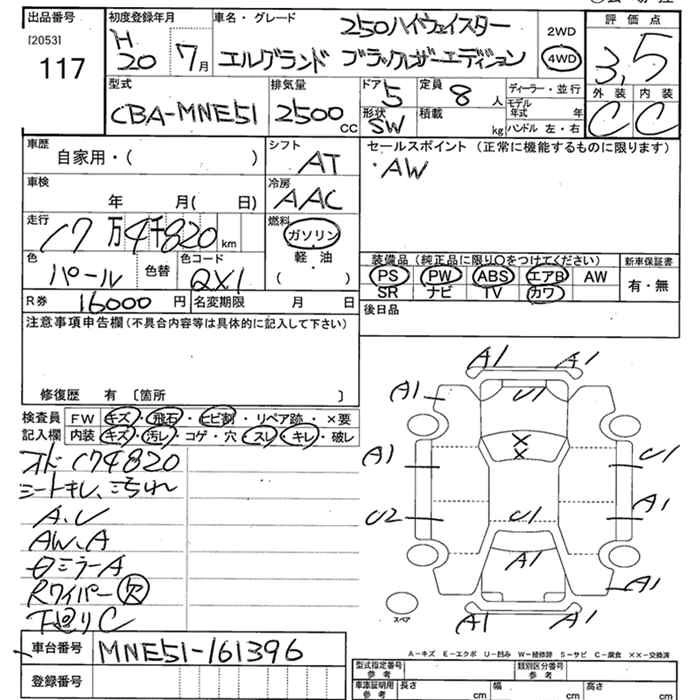 出品番号
[2053]
117
初度登録年月
H
20 7月
車名・グレード
250ハイウェイスター
エルグランド ブラックレザーエディション
2WD
4WD
評価点
3.5
外装 内装
C C
型式
CBA-MNE51
排気量
2500 cc
ドア 5
形状 SW
定員 8 人
積載 kg
ディーラー・並行
モデル年式 年
ハンドル 左・右
車歴
自家用・( )
シフト
AT
セールスポイント (正常に機能するものに限ります)
・AW
車検
年 月( 日)
冷房
AAC
走行
17万4千820 km
燃料
ガソリン
軽油
( )
色
パール
色替
色コード
QX1
装備品 (純正品に限り○をつけてください)
PS PW ABS エアB AW
SR ナビ TV カワ
新車保証書
有・無
R券 16000 円
名変期限 月 日
後日品
注意事項申告欄(不具合内容等は具体的に記入して下さい)
修復歴 有 〔箇所 〕
検査員
記入欄
FW キズ・飛石・ヒビ割・リペア跡・×要
内装 キズ・汚レ・コゲ・穴・スレ・キレ・破レ
174820
シートキレ、
A.U
AW.A
ミラーA
Rワイパー 欠
下廻りC
A1 A1
A1 U1
A1 U1
A1
U2 U1
A1 A1
A1 A1
スペア
A-キズ E-エクボ U-凹み W-補修跡 S-サビ C-腐食 XX-交換済
車台番号
MNE51-161396
登録番号
参考
型式指定番号
参考
類別区分番号
参考
車庫証明用
参考
長さ cm
幅 cm
高さ cm